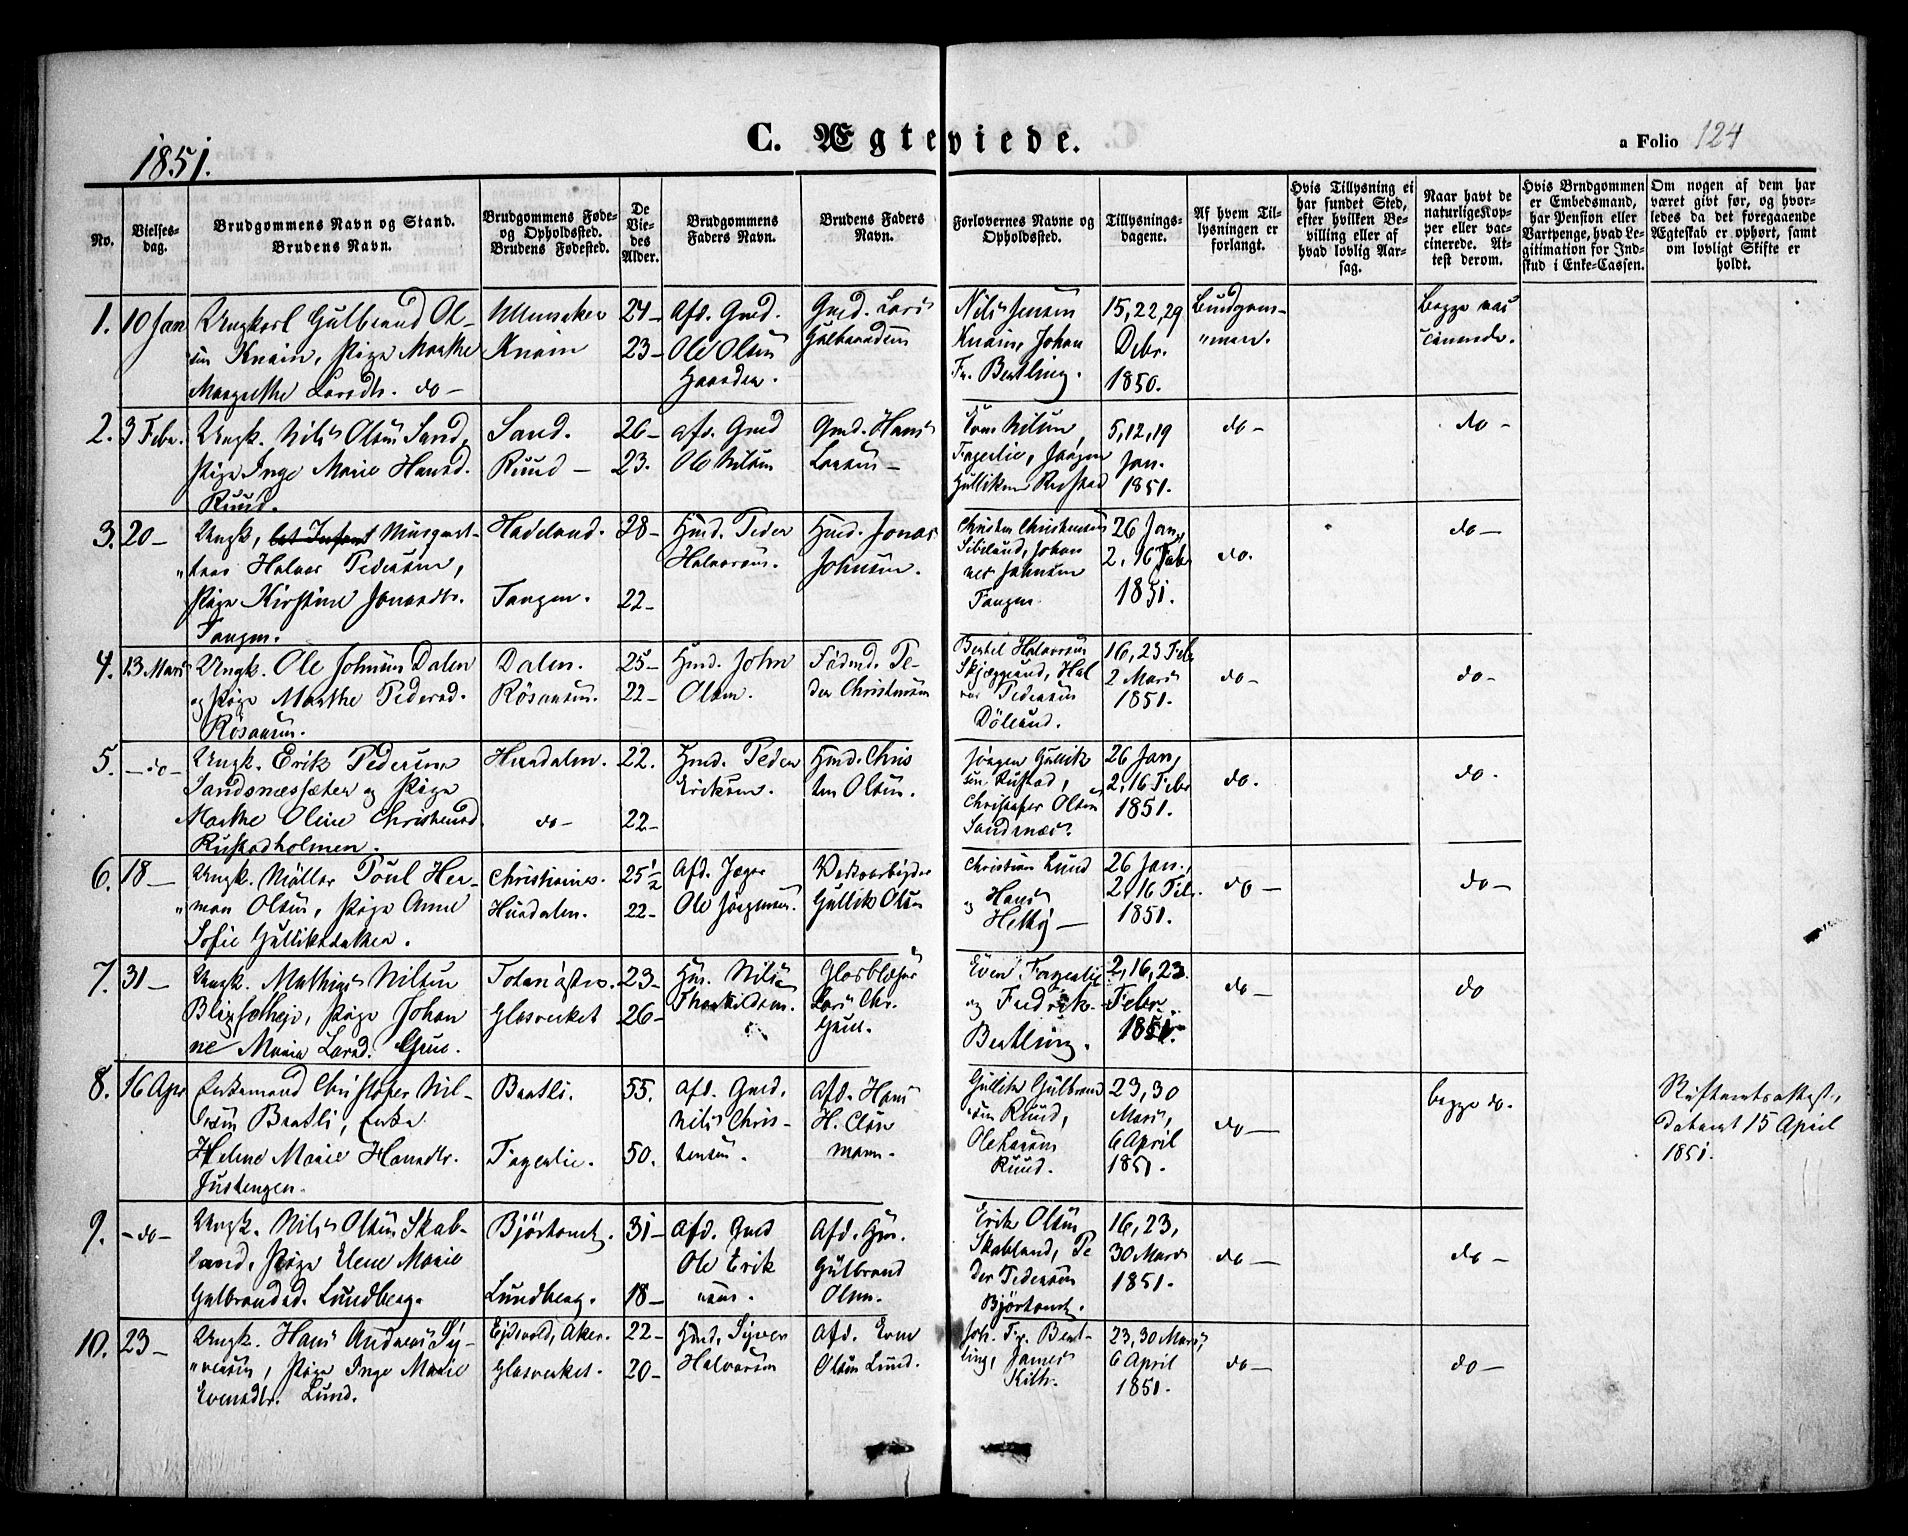 1851.
C. Ægteviede.
a Folio 124
No.
Vielses-
dag.
Brudgommens Navn og Stand.
Brudens Navn.
Brudgommens Føde-
og Opholdssted.
Brudens Fødested.
De
Vie-
des
Alder.
Brudgommens
Faders Navn.
Brudens Faders
Navn.
Forlovernes Navne og
Opholdssted.
Tillysnings-
dagene.
Af hvem Til-
lysningen er
forlangt.
Hvis Tillysning ei
har fundet Sted,
efter hvilken Be-
villing eller af
hvad lovlig Aar-
sag.
Naar havt de
naturlige Kop-
per eller vac-
cinerede. At-
test derom.
Hvis Brudgommen
er Embedsmand,
har Pension eller
Vartpenge, hvad Le-
gitimation for Ind-
skud i Enke-Cassen.
Om nogen af dem har
været givt før, og hvor-
ledes da det foregaaende
Ægteskab er ophørt, samt
om lovligt Skifte er
holdt.
1. 10 Jan
Ungkarl Gulbrand Ol-
sen Knain, Pige Marthe
Margrethe Larsdtr. do -
Ullensaker
Knain
24-
23-
Afd. Gmd.
Ole Olsen
Gmd. Lars
Gulbrandsen
Nils Jensen
Knain, Johan
Fr. Bertling.
15, 22, 29
Debr.
1850.
Brudgom-
"men.
Begge vac
cinerede.
2. 3 Febr.
Ungk. Nils Olsen Sand,
Pige Inge Marie Hansd.
Ruud.
Sand.
Ruud -
26-
23.
afd. Gmd
Ole Nilsen
Gmd. Hans
Larsen -
Nilsen
Fagerlie, Jørgen
Gulliksen Rustad
5, 12, 19
Jan.
1851.
do -
do -
3. 20 -
Ungk,
Halvor Pedersen,
Pige Kirstine Jonasdtr.
Tangen.
Hadeland.
Tangen.
28-
22-
Hmd. Peder
Halvorsen.
Hmd. Jonas
Johnsen.
Christen Christensen
Johan
nes Johnsen
Tangen.
26 Jan,
2, 16 Febr
1851.
do.
do -
4. 13 Mars
Ungk. Ole Johnsen Dalen
og Pige Marthe Pedersd.
Røsaasen.
Dalen.
Røsaasen.
25-
22-
Hmd. John
Olsen.
Pe-
der Christensen
Bertel Halvorsen
Skjæggerud, Hal
vor Pedersen
Dølerud.
16, 23 Feb
2 Mars
1851.
do -
do -
5. - do -
Ungk. Erik Pedersen
Sandsnessæter og Pige
Marthe Oline Christensd.
Rustadholmen.
Hurdalen.
do -
22.
22-
Hmd. Peder
Eriksen.
Hmd. Chris
ten Olsen.
Jørgen Gullik
sen Rustad,
Christofer Olsen
Sandsnæs.
26 Jan,
2, 16 Febr
1851.
do.
do.
6. 18 -
Ungk. Møller Poul Her-
"man Olsen, Pige Anne
Sofie Gulliksdatter.
Christiania.
Hurdalen.
25½
22-
Afd. Jæger
Ole Jørgensen.
Verksarbeider
Gullik Olsen
Christian Lund
og Hans
26 Jan.,
2, 16 Feb.
1851.
do -
do -
7. 31 -
Ungk. Mathias Nilsen
Pige Johan
ne Marie Larsd.
Glasverket
23-
26-
Nils
Glasblæser
Lars Chr.
Even Fagerlie
og Fredrik
Bertling.
2, 16, 23
Febr.
1851.
do -
do
8. 16 Apr
Enkemand Christofer Nil-
sen Bratli, Enke
Helene Marie Hansdtr.
Justengen.
Bratli.
Fagerlie.
55.
50.
Afd. Gmd.
Nils Chris-
tensen.
Afd. Hans
H. Clas
mann.
Gullik Gulbrand
"sen Ruud,
Ole Larsen
Ruud.
23, 30
Mars,
6 April
1851.
do -
begge do.
Skifteretsattest,
dateret 15 April
1851.
9. - do -
Ungk. Nils Olsen Skab-
land, Pige Elene Marie
Gulbrandsd. Lundberg.
Bjørtomt.
Lundberg.
31-
18-
Afd. Gmd
Ole Erik
"sen.
Afd.
Gulbrand
Olsen.
Erik Olsen
Skabland, Pe
der Pedersen
Bjørtomt.
16, 23,
30 Mars
1851.
do -
do -
10. 23 -
Ungk. Hans Andreas Sy-
"versen, Pige Inge Marie
Evensdtr. Lund.
Eidsvold, Aker.
Glasverket.
22-
20-
Hmd. Syver
Halvorsen
Afd. Even
Olsen Lund.
Joh. Fr. Bert-
ling, James
Kith.
23, 30 Mars,
6 April
1851.
do -
do -